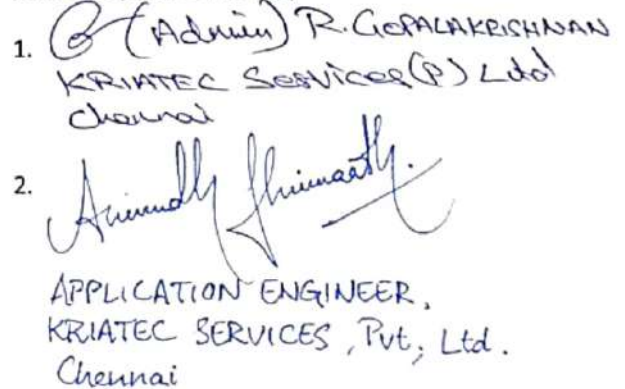 1. (Admin) R. GOPALAKRISHNAN
KRIATEC Services (P) Ltd
Chennai
2.
APPLICATION ENGINEER,
KRIATEC SERVICES, Pvt, Ltd.
Chennai